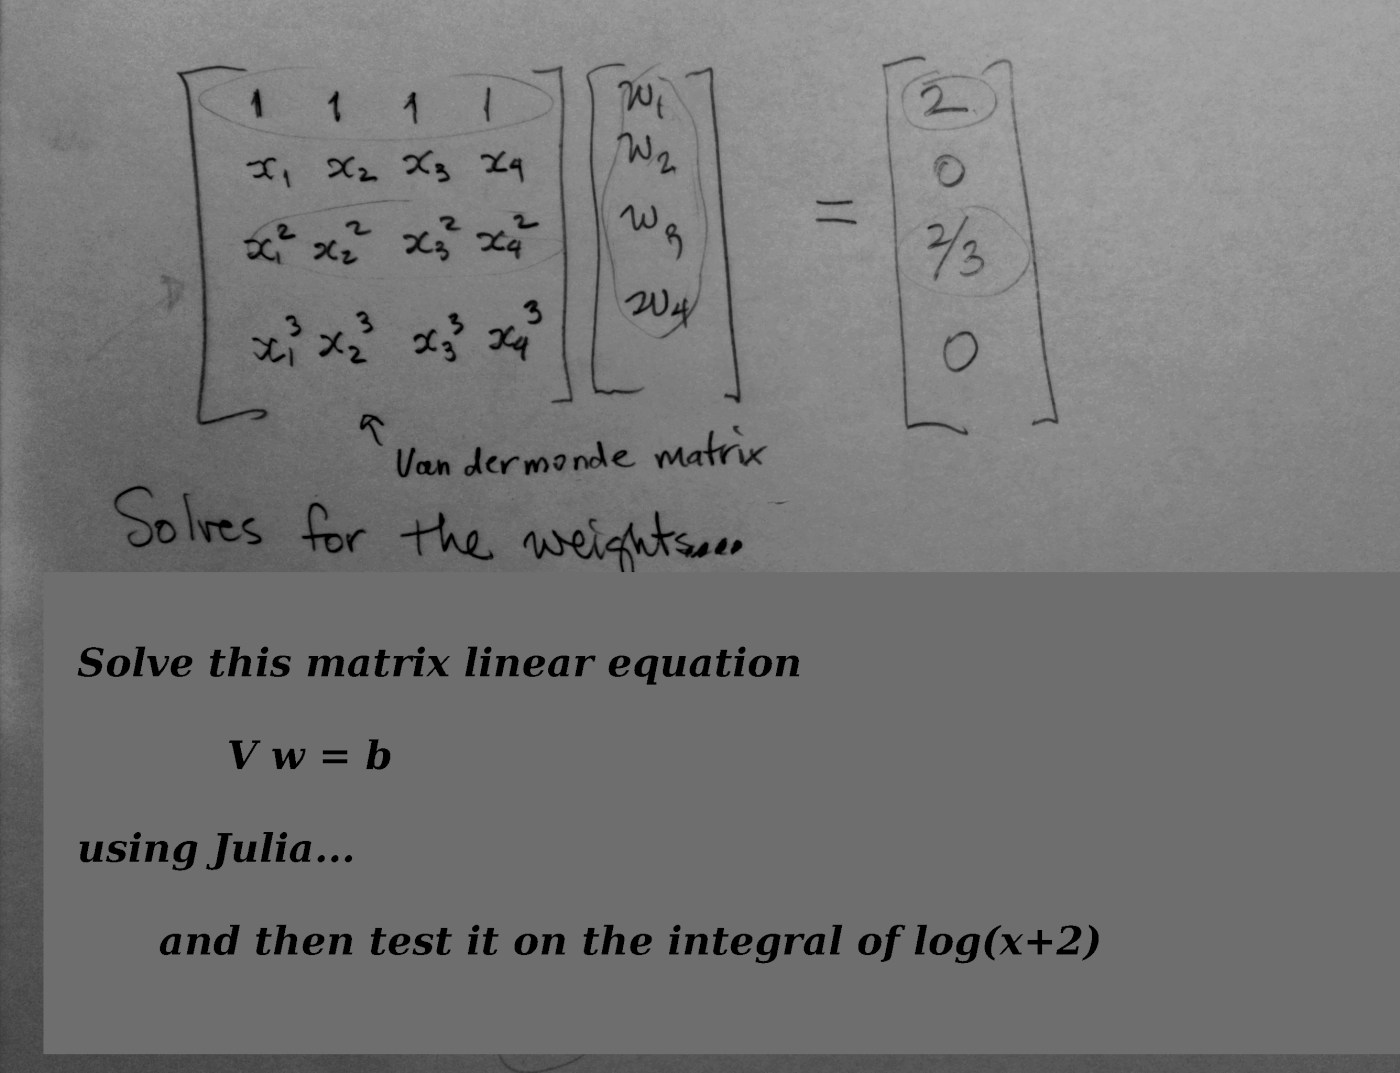 1 1 1 1 w₁ 2
x₁ x₂ x₃ x₄ w₂ 0
x₁² x₂² x₃² x₄² w₃ = 2/3
x₁³ x₂³ x₃³ x₄³ w₄ 0
Vandermonde matrix
Solves for the weights....
Solve this matrix linear equation
V w = b
using Julia...
and then test it on the integral of log(x+2)